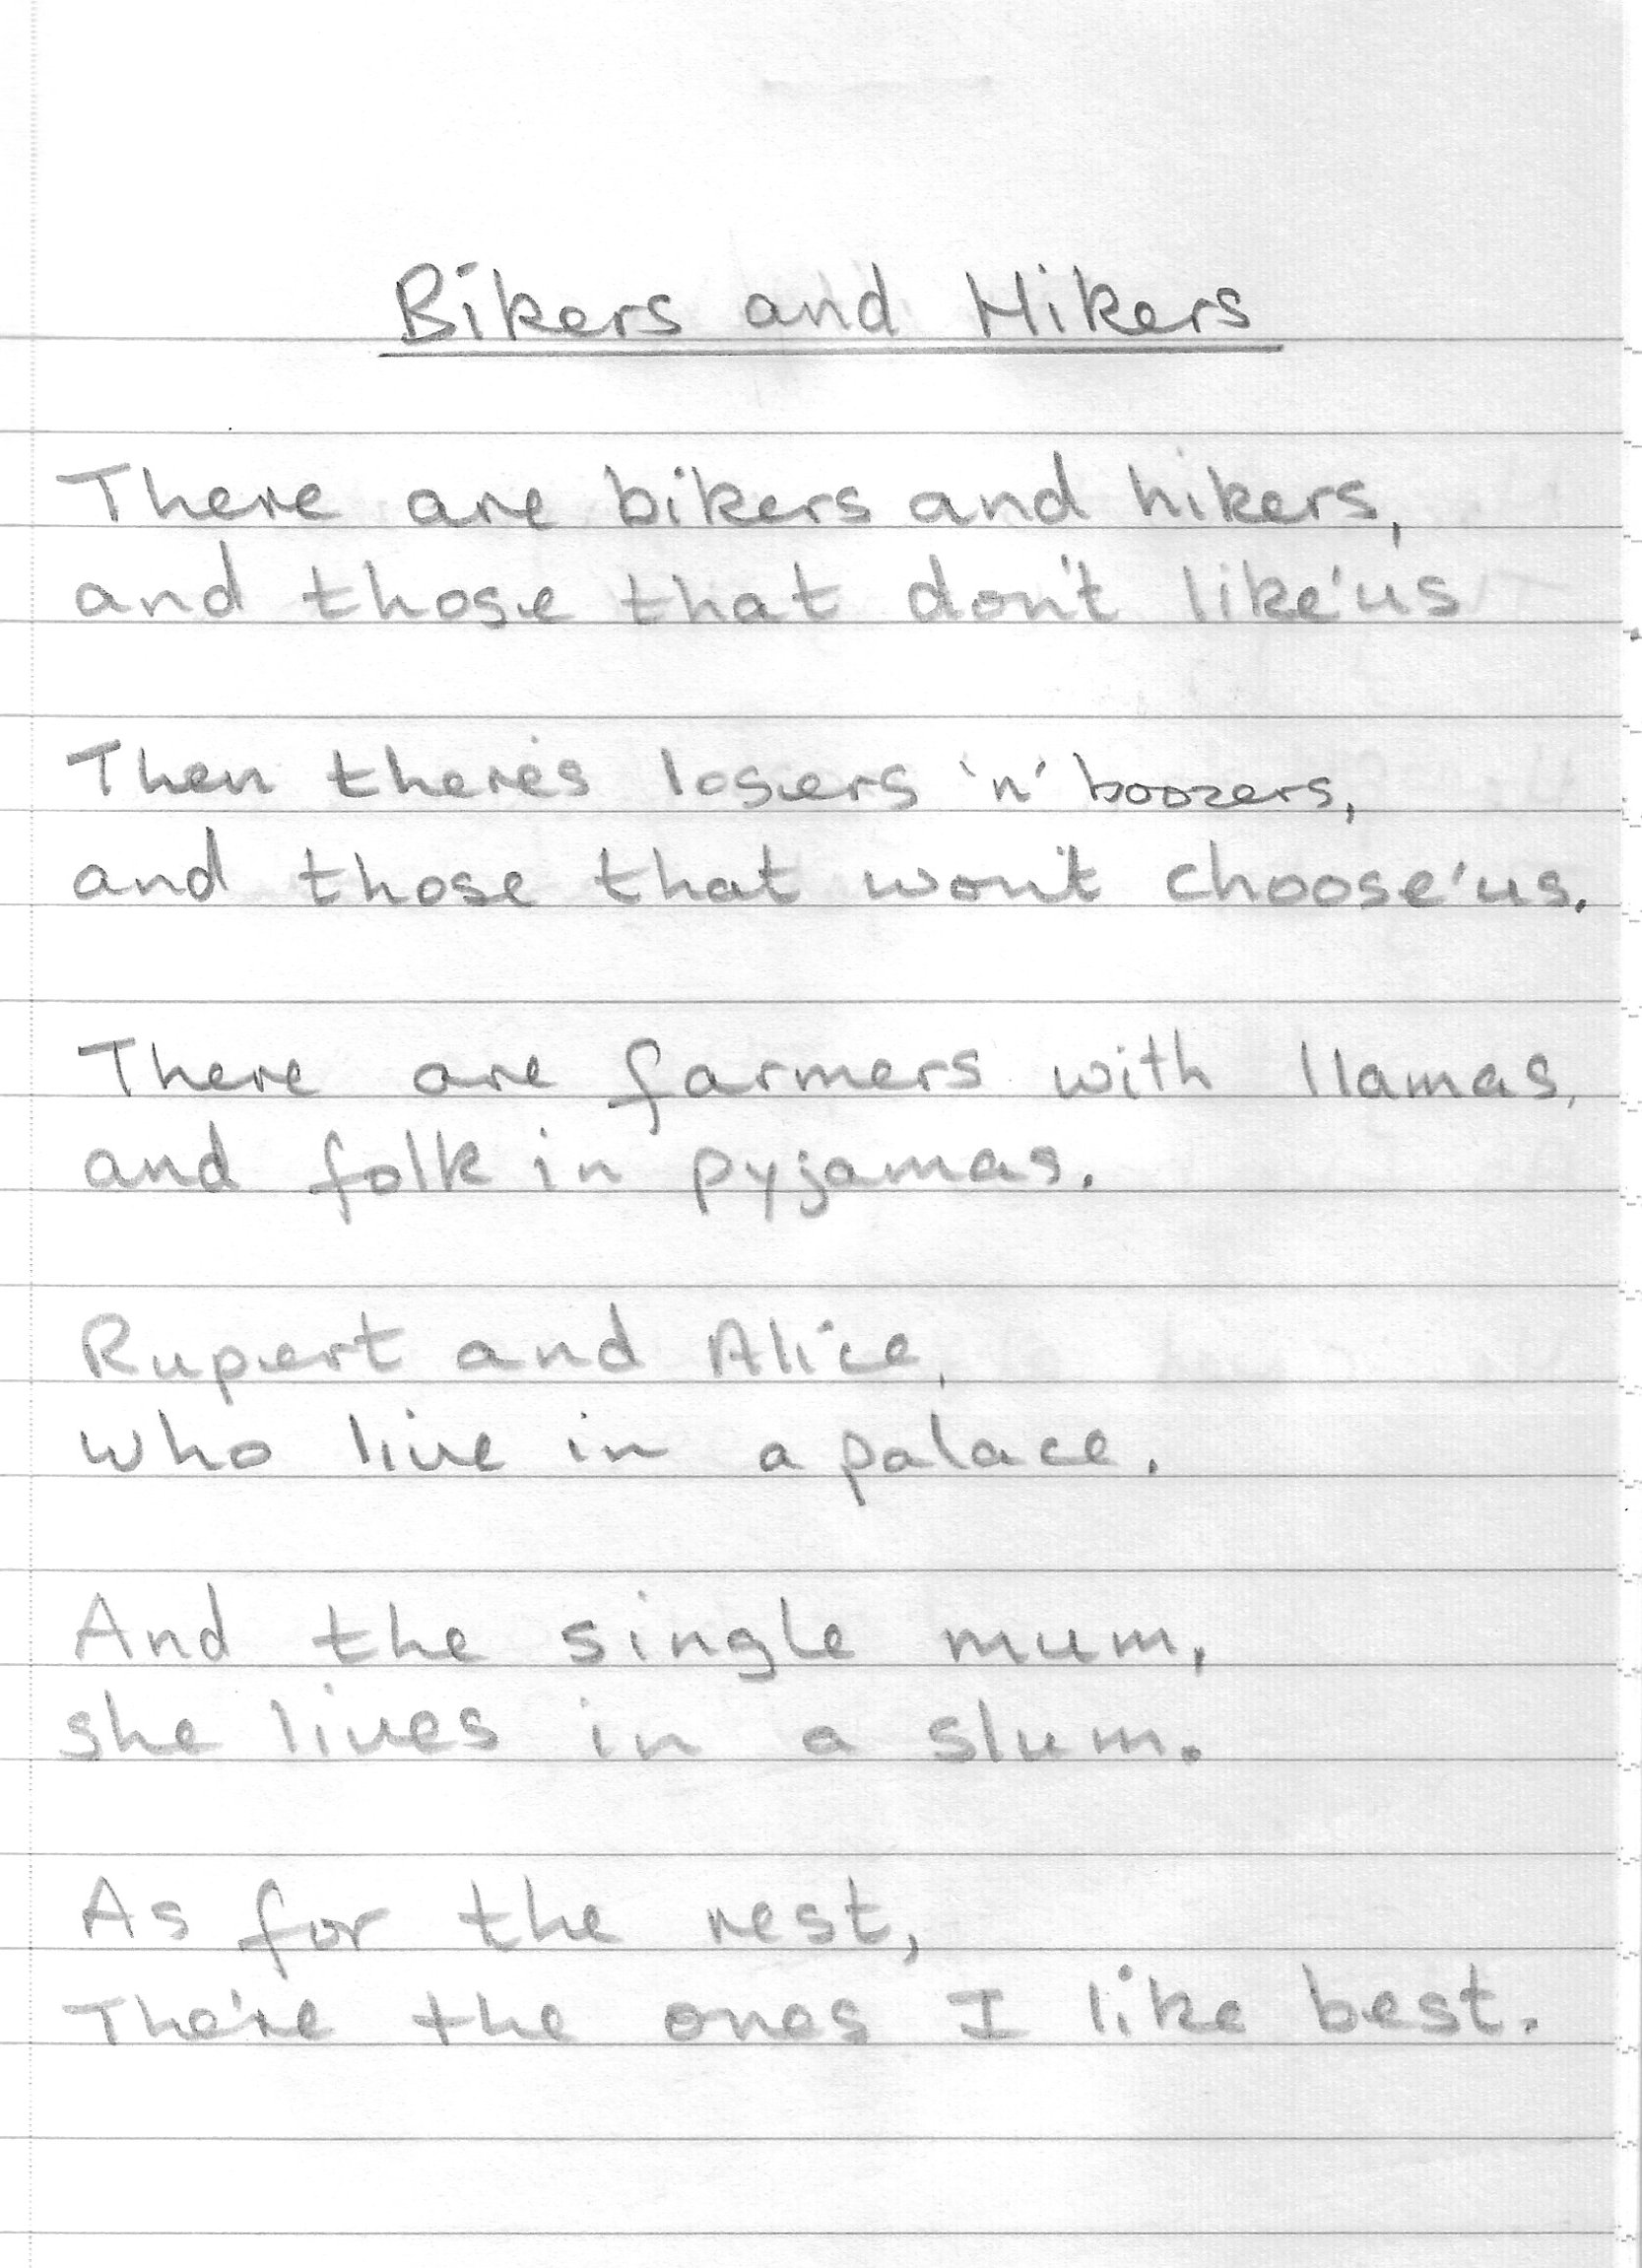 Bikers and Hikers
There are bikers and hikers,
and those that don't like'us
Then there's losers 'n' boozers,
and those that won't choose'us.
There are farmers with llamas,
and folk in pyjamas.
Rupert and Alice,
who live in a palace.
And the single mum,
she lives in a slum.
As for the rest,
The're the ones I like best.